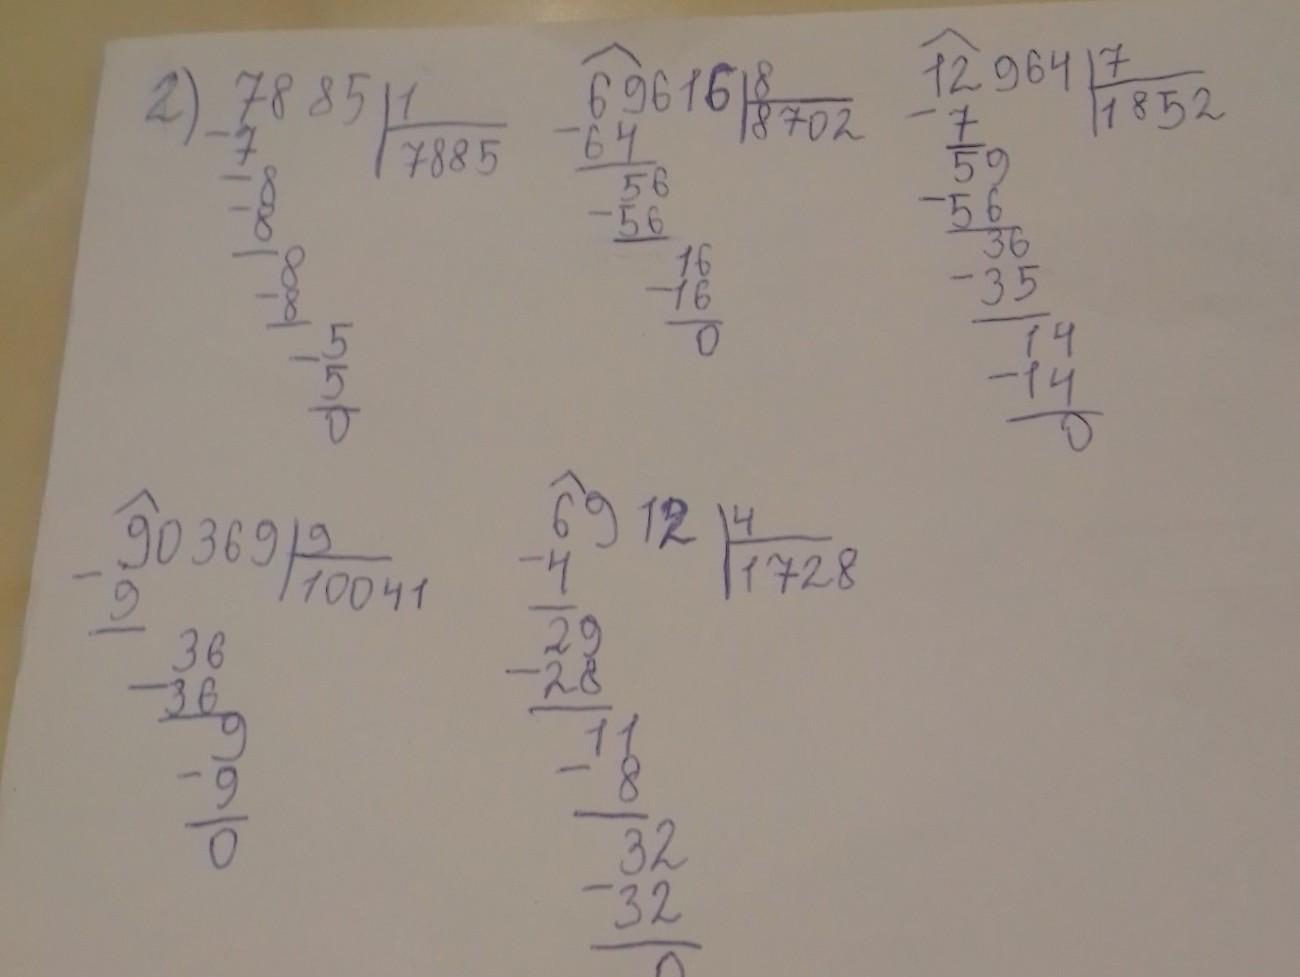 2) 7885 | 1
- 7 | 7885
- 8
- 8
- 8
- 8
- 5
5
0
69616 | 8
- 64 | 8702
56
- 56
16
- 16
0
12964 | 7
- 7 | 1852
59
- 56
36
- 35
14
- 14
0
90369 | 9
- 9 | 10041
36
- 36
9
- 9
0
6912 | 4
- 4 | 1728
29
- 28
11
- 8
32
- 32
0